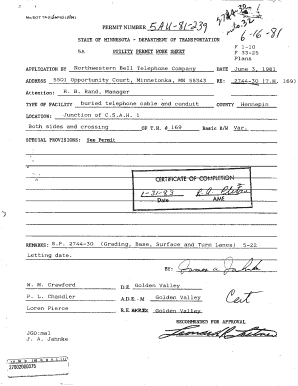 PERMIT NUMBER 5AU-81-239
6-16-81
STATE OF MINNESOTA - DEPARTMENT OF TRANSPORTATION
UTILITY PERMIT WORK SHEET
F 1-10
F 33-25
Plans
APPLICATION BY Northwestern Bell Telephone Company DATE June 3, 1981
ADDRESS 5501 Opportunity Court, Minnetonka, MN 55343 RE: 2744-30 (T.H. 169)
Attention: R. B. Rand, Manager
TYPE OF FACILITY buried telephone cable and conduit COUNTY Hennepin
LOCATION: Junction of C.S.A.H. 1
Both sides and crossing OF T.H. # 169 Basic R/W Var.
SPECIAL PROVISIONS: See Permit
CERTIFICATE OF COMPLETION
1-31-83
Date AME
REMARKS: S.P. 2744-30 (Grading, Base, Surface and Turn lanes) 5-22
Letting date.
BY:
W. M. Crawford D.E. Golden Valley
P. L. Chandler A.D.E.-M Golden Valley
Loren Pierce Golden Valley
Cert
RECOMMENDED FOR APPROVAL
JGO:mal
J. A. Jahnke